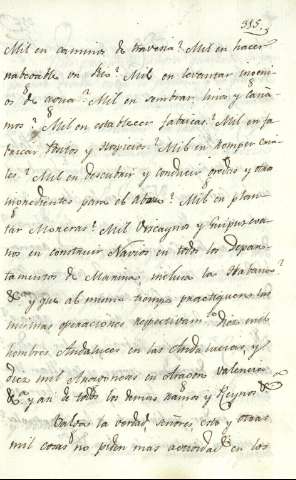 315.
Mil en caminos de traversia? Mil en hacer
nabegable un Rio? Mil en levantar ingeni
os de agua? Mil en sembrar lino y caña
mos? Mil en establecer fabricas? Mil en fa
bricar Puertos y Hospicios? Mil en romper cana
les? Mil en descubrir y conducir gredas y otros
ingredientes para el Abono? Mil en plan
tar Moreras? Mil Vizcaynos y Guipuzcoa
nos en construir Navios en todos los Depar
tamentos de Marina, inclusa la Habana?
&ª y que al mismo tiempo practiquen las
mismas operaciones respectivam.te Diez mil
hombres Andaluces en las Andalucias, y
diez mil Aragoneses en Aragon Valencia
&ª y asi de todos los demas ramos y Reynos &ª
Valgas la verdad, señores, esto y otras
mil cosas no piden mas actividad en los